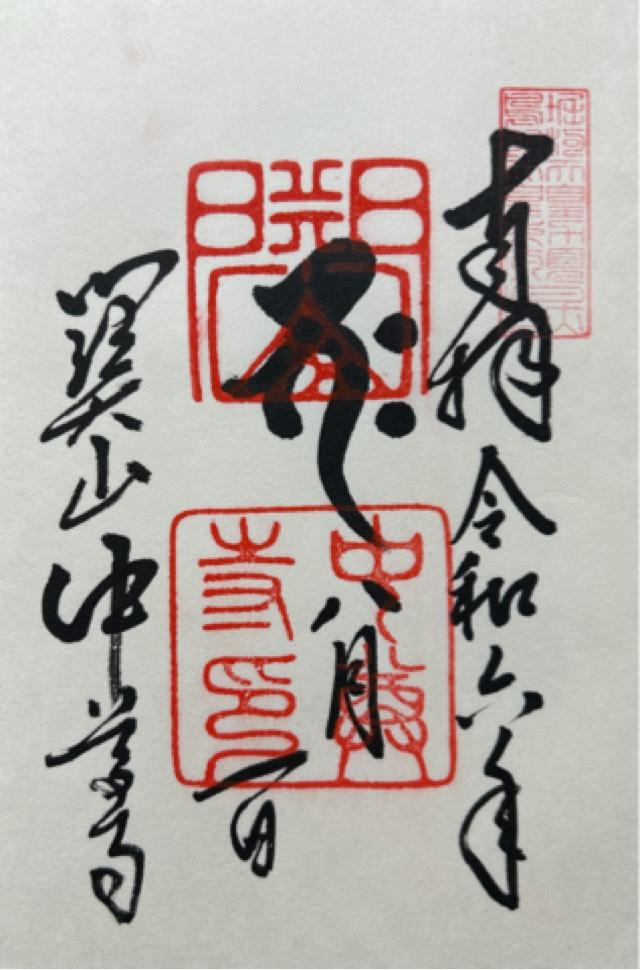 奉拝 令和六年
八月一日
関山 中尊寺
中尊寺印